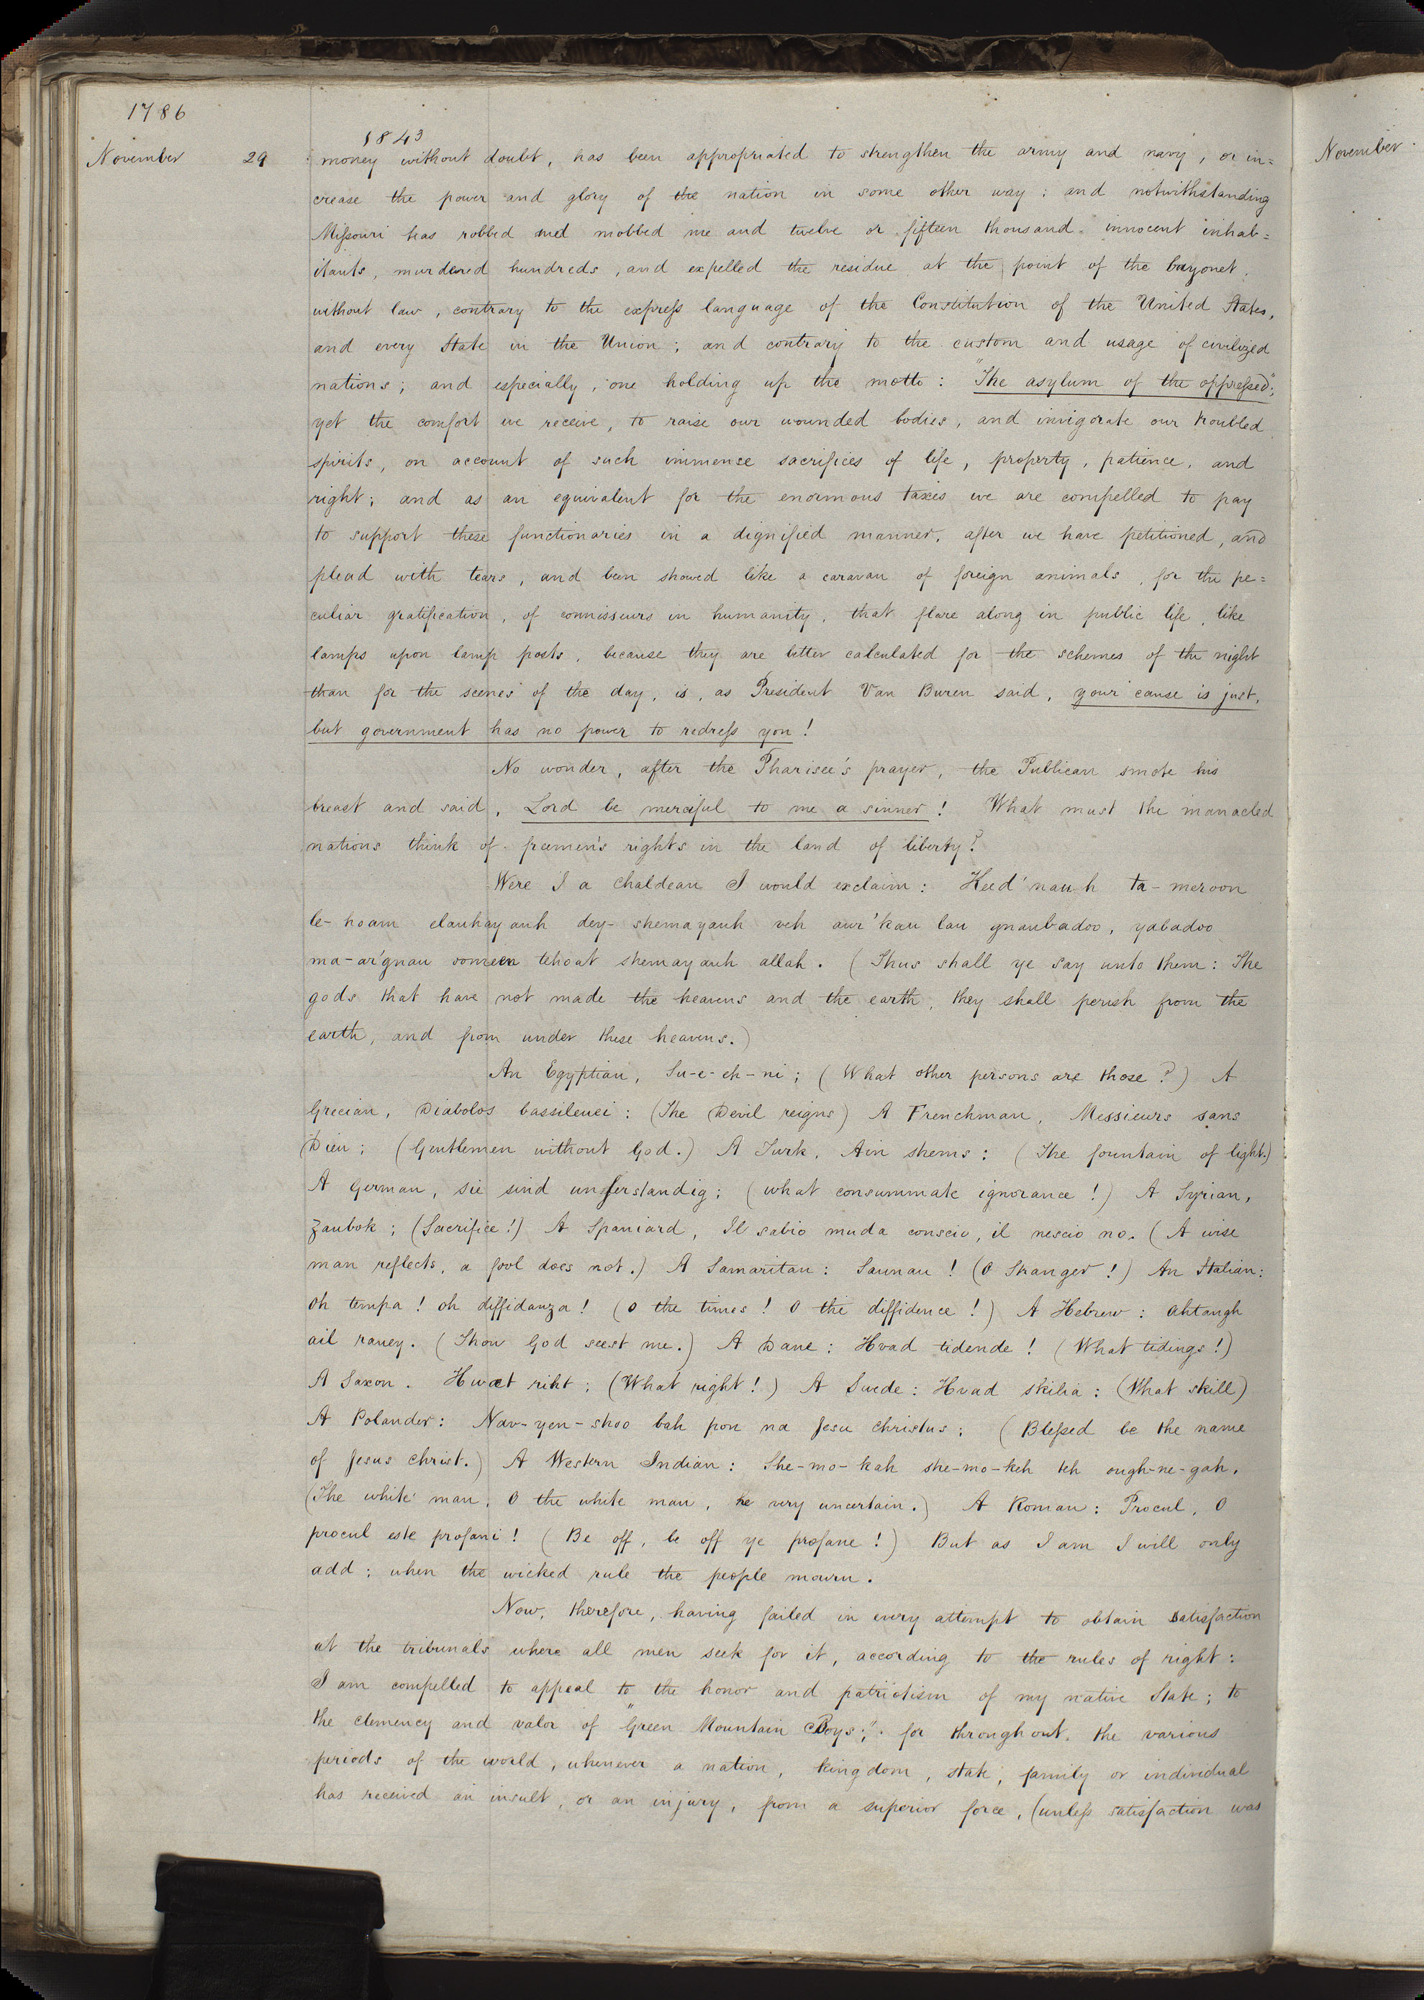 1786
1843
November 29 money without doubt, has been appropriated to strengthen the army and navy, or in=
crease the power and glory of the nation in some other way: and notwithstanding
Missouri has robbed and mobbed me and twelve or fifteen thousand innocent inhab=
itants, murdered hundreds, and expelled the residue at the point of the bayonet.
without law, contrary to the express language of the Constitution of the United States,
and every State in the Union; and contrary to the custom and usage of civilized
nations; and especially, one holding up the motto: "The asylum of the oppressed";
yet the comfort we receive, to raise our wounded bodies, and invigorate our troubled
spirits, on account of such immense sacrifices of life, property, patience, and
right; and as an equivalent for the enormous taxes we are compelled to pay
to support these functionaries in a dignified manner, after we have petitioned, and
plead with tears, and been showed like a caravan of foreign animals, for the pe=
culiar gratification, of connisseurs in humanity, that flare along in public life, like
lamps upon lamp posts, because they are better calculated for the schemes of the night
than for the scenes of the day, is, as President Van Buren said, your cause is just,
but government has no power to redress you!
No wonder, after the Pharisee's prayer, the Publican smote his
breast and said, Lord be merciful to me a sinner! What must the manacled
nations think of freemen's rights in the land of liberty?
Were I a Chaldean I would exclaim: Keed'nauh ta-meroon
le-hoam elauhayauh dey-shemayauh veh aur'kau lau gnaubadoo, yabadoo
ma-ar'gnau comeen tehoat shemayauh allah. (Thus shall ye say unto them: The
gods that have not made the heavens and the earth, they shall perish from the
earth, and from under these heavens.)
An Egyptian, Su-e-eh-ni; (What other persons are those?) A
Grecian, Diabolos bassileuei: (The Devil reigns) A Frenchman, Messieurs sans
Dieu; (Gentlemen without God.) A Turk, Ain shems: (The fountain of light.)
A German, sie sind unferstandig; (what consummate ignorance!) A Syrian,
Zaubok; (Sacrifice!) A Spaniard, Il sabio muda conscio, il nescio no. (A wise
man reflects, a fool does not.) A Samaritan: Saunau! (O Stranger!) An Italian:
oh tempa! oh diffidanza! (O the times! O the diffidence!) A Hebrew: Ahtaugh
ail rauey. (Thou God seest me.) A Dane: Hvad tidende! (What tidings!)
A Saxon. Hwæt riht; (What right!) A Swede: Hvad skilia: (What skill)
A Polander: Nav-yen-shoo bah pon na Jesu Christus; (Blessed be the name
of Jesus Christ.) A Western Indian: She-mo-kah she-mo-keh teh ough-ne-gah.
(The white man, O the white man, he very uncertain.) A Roman: Procul, O
procul este profani! (Be off, be off ye profane!) But as I am I will only
add; when the wicked rule the people mourn.
Now, therefore, having failed in every attempt to obtain satisfaction
at the tribunals where all men seek for it, according to the rules of right:
I am compelled to appeal to the honor and patriotism of my native State; to
the clemency and valor of "Green Mountain Boys;" for throughout the various
periods of the world, whenever a nation, kingdom, state, family or individual
has received an insult, or an injury, from a superior force, (unless satisfaction was
November